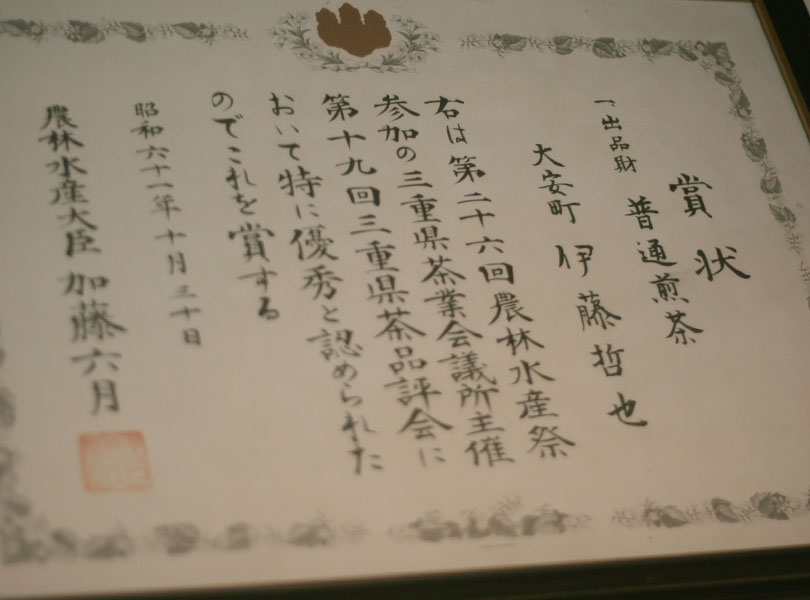 賞状
一、出品財 普通煎茶
大安町 伊藤哲也
右は第二十六回農林水産祭
参加の三重県茶業会議所主催
第十九回三重県茶品評会に
おいて特に優秀と認められた
のでこれを賞する
昭和六十一年十月三十日
農林水産大臣 加藤六月